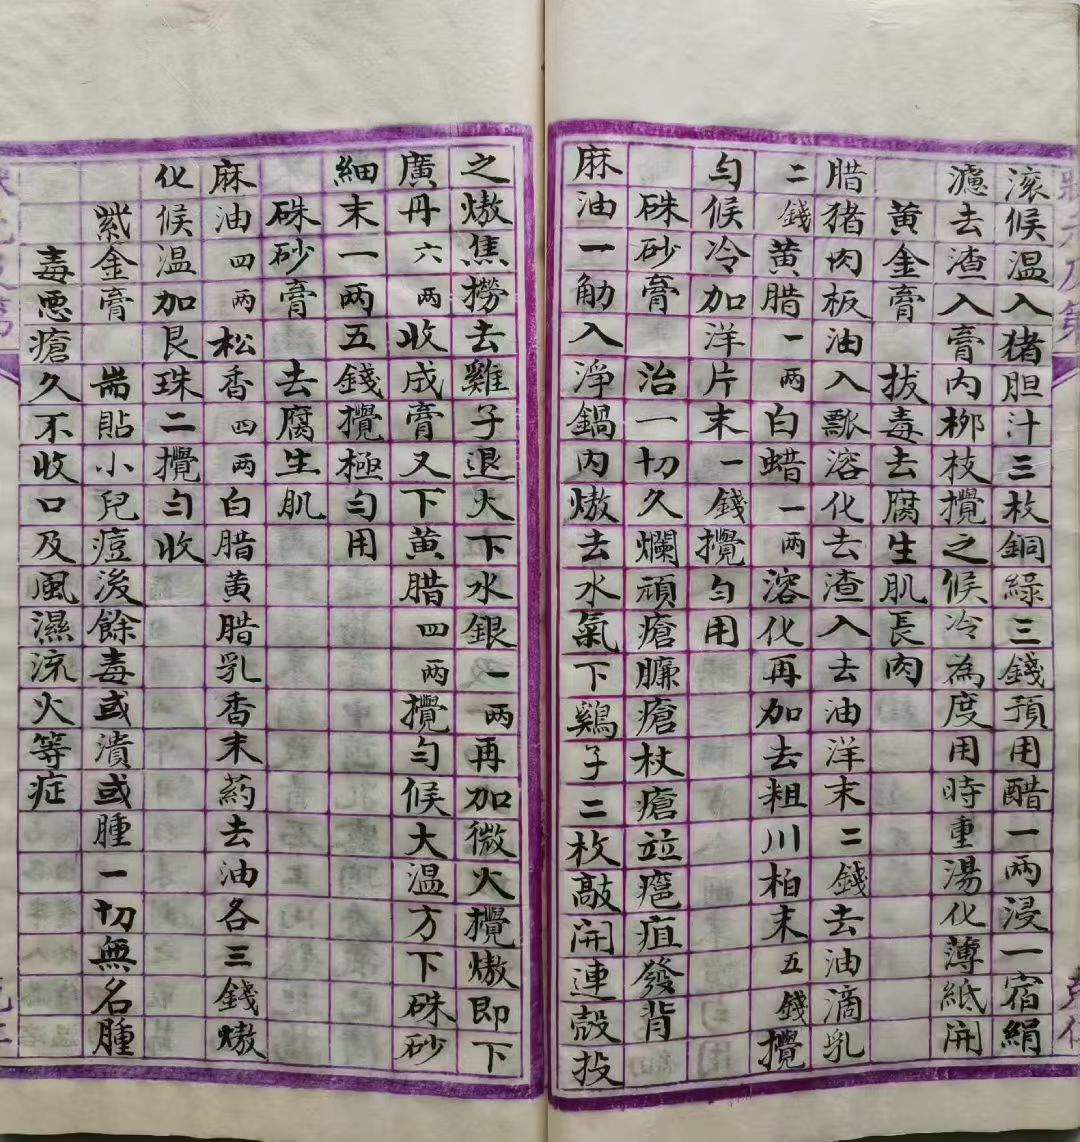 滚候温入猪胆汁三枚銅綠三錢預用醋一两浸一宿絹
濾去渣入膏内柳枝攪之候冷為度用時重湯化薄紙開
黃金膏 拔毒去腐生肌長肉
腊猪肉板油入瓢溶化去渣入去油洋末二錢去油滴乳
二錢黃腊一两白蜡一两溶化再加去粗川柏末五錢攪
勻候冷加洋片末一錢攪勻用
硃砂膏 治一切久爛頑瘡臁瘡杖瘡並癰疽發背
麻油一觔入淨鍋内熬去水氣下鷄子二枚敲開連殼投
之熬焦撈去雞子退火下水銀一两再加微火攪熬即下
廣丹六两收成膏又下黃腊四两攪勻候大温方下硃砂
細末一两五錢攪極勻用
硃砂膏 去腐生肌
麻油四两松香四两白腊黃腊乳香末葯去油各三錢熬
化候温加艮珠二攪勻收
紫金膏 耑貼小兒痘後餘毒或潰或腫一切無名腫
毒悪瘡久不收口及風濕流火等症